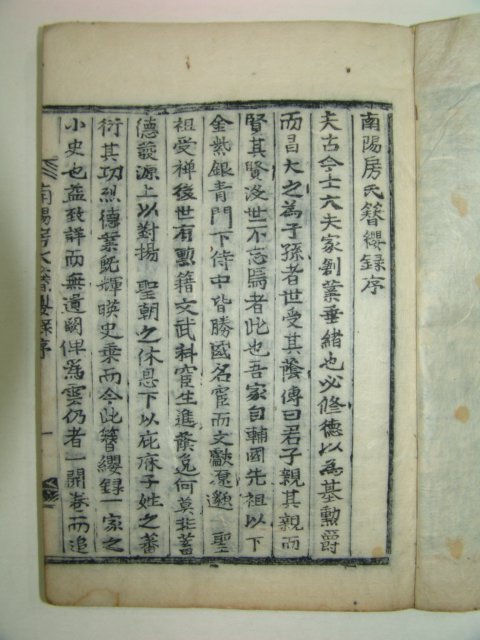 南陽房氏簪纓錄序
夫古今士大夫家創業垂緖也必修德以為基勳爵
而昌大之為子孫者世受其蔭傳曰君子親其親而
賢其賢沒世不忘焉者此也吾家自輔國先祖以下
金紫銀青門下侍中皆勝國名宦而文獻遼邈 聖
祖受禅後世有勳籍文武科宦生進蔭逸何莫非蓄
德發源上以對揚 聖朝之休息下以庇庥子姓之蕃
衍其功烈德業旣輝暎史乗而今此簪纓錄一家之
小史也益致詳而無遺闕俾爲雲仍者一開卷而追
南陽房氏簪纓錄序 一